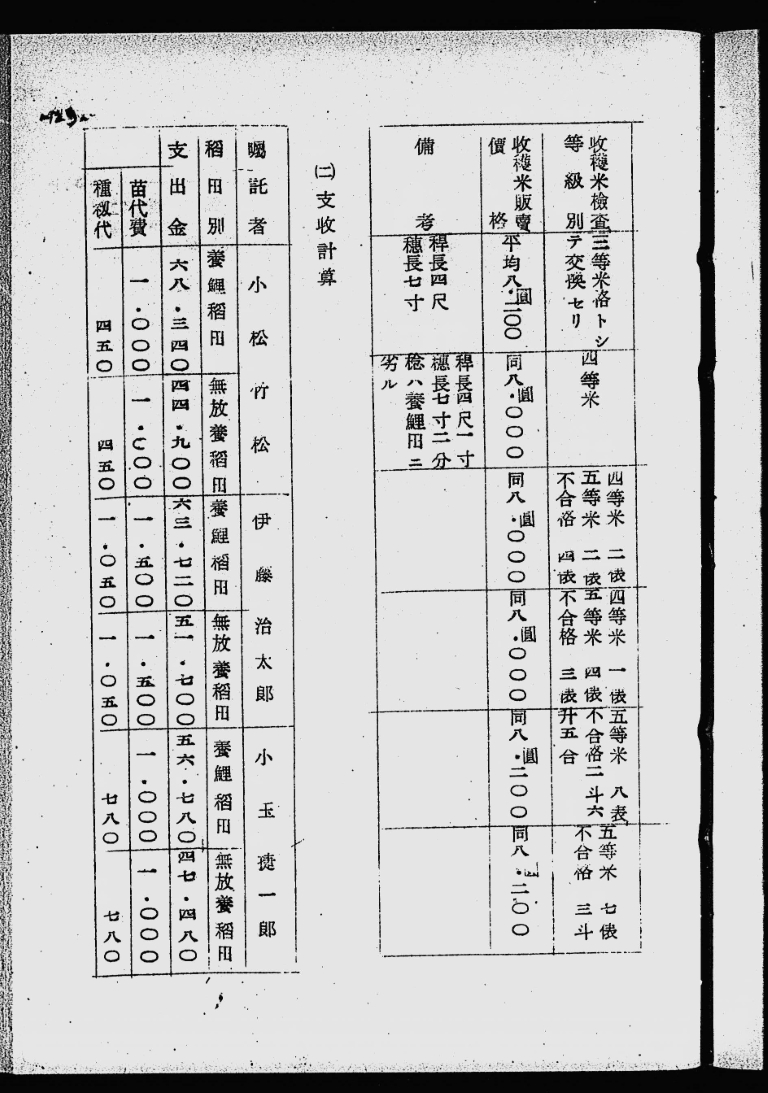 收穫米檢査
等級別
三等米格トシ
テ交換セリ
四等米
四等米 二俵
五等米 二俵
不合格 四俵
四等米 一俵
五等米 四俵
不合格 三俵
五等米 八表
不合格二斗六
升五合
五等米 七俵
不合格 三斗
收穫米販賣
價格
平均八・二〇〇圓
同八・〇〇〇圓
同八・〇〇〇圓
同八・〇〇〇圓
同八・二〇〇圓
同八・二〇〇圓
備考
稈長四尺
穗長七寸
稈長四尺一寸
穗長七寸二分
稔ハ養鯉田ニ
劣ル
(二)支收計算
囑託者
小松竹松
伊藤治太郎
小玉 一郎
稻田別
養鯉稻田
無放養稻田
養鯉稻田
無放養稻田
養鯉稻田
無放養稻田
支出金
六八・三四〇
四四・九〇〇
六三・七二〇
五一・七〇〇
五六・七八〇
四七・四八〇
苗代費
一・〇〇〇
一・〇〇〇
一・五〇〇
一・五〇〇
一・〇〇〇
一・〇〇〇
種籾代
四五〇
四五〇
一・〇五〇
一・〇五〇
七八〇
七八〇